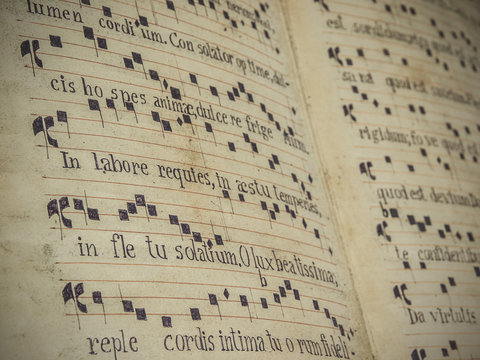 lumen cordium. Con solator optime, dul-
cis ho spes animæ, dulce re frige rium.
In labore requies, in æstu temperies,
in fle tu solatium, O lux beatissima,
reple cordis intima tu o rum fideli-
est sordidum,
sa na quod est saucium.
rigidum, fo ve quod est
quod est devium. Da
te confidenti
Da virtutis